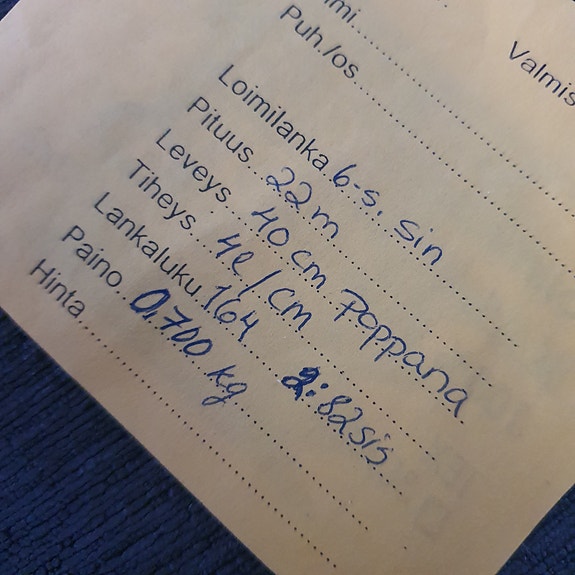 mi
Valmis
Puh./os
Loimilanka 6-s. sin
Pituus 22 m
Leveys 40 cm poppana
Tiheys 4l/cm
Lankaluku 164 2:82sis
Paino 0.700 kg
Hinta